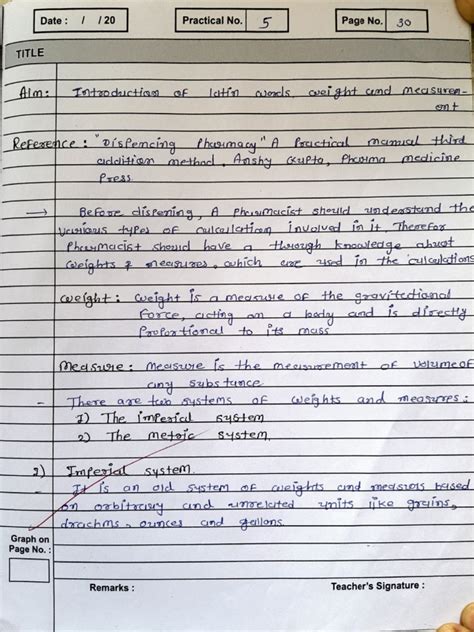 Date : / / 20
Practical No. 5
Page No. 30
TITLE
Aim: Introduction of latin words, weight and measurem-
ent
Reference : "Dispencing Pharmacy" A Practical manual third
addition method, Anshy Gupta, Pharma medicine
Press
→ Before dispening, A Pharmacist should understand the
various types of calculation involved in it, Therefor
Pharmacist should have a through knowledge about
weights & measures, which are used in the calculations
weight : weight is a measure of the gravitational
Force, acting on a body and is directly
Proportional to its mass
Measure : Measure is the measurement of volume of
any substance
- There are two systems of weights and measures :
1) The imperial system
2) The metric system.
1) Imperial system.
- It is an old system of weights and measurs based
on orbitrary and unrelated units like grains,
drachms, ounces and gallons.
Graph on
Page No. :
Remarks :
Teacher's Signature :